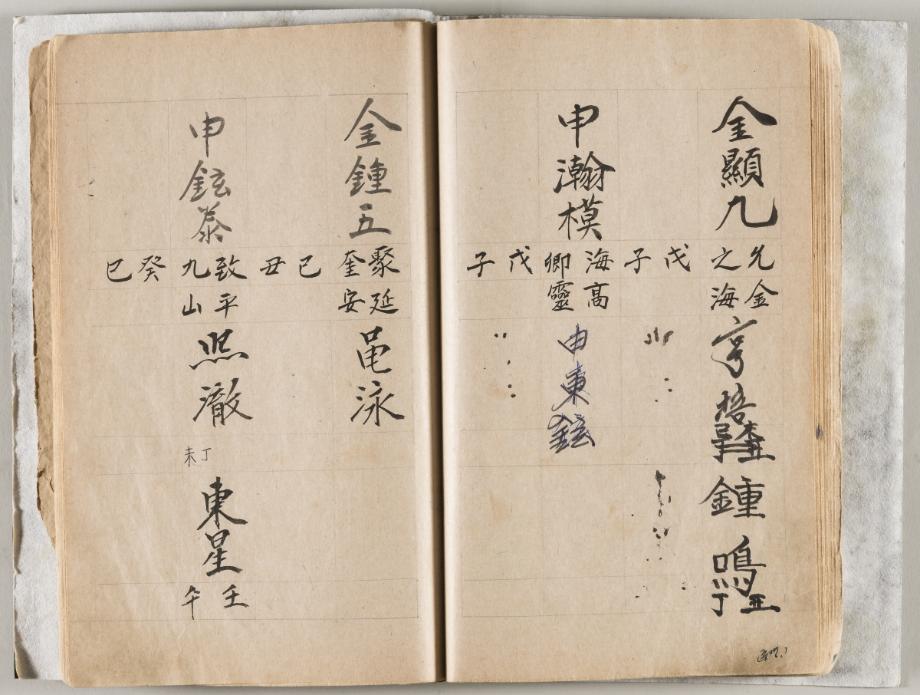 金顯九
允金
之海
戊
子
亨培
鍾鳴
丁
申瀚模
海高
卿靈
戊
子
申東鉉
金鍾五
聚延
奎安
己
丑
黽泳
申鉉泰
致平
九山
癸
巳
熙澈
丁未
東星
壬午